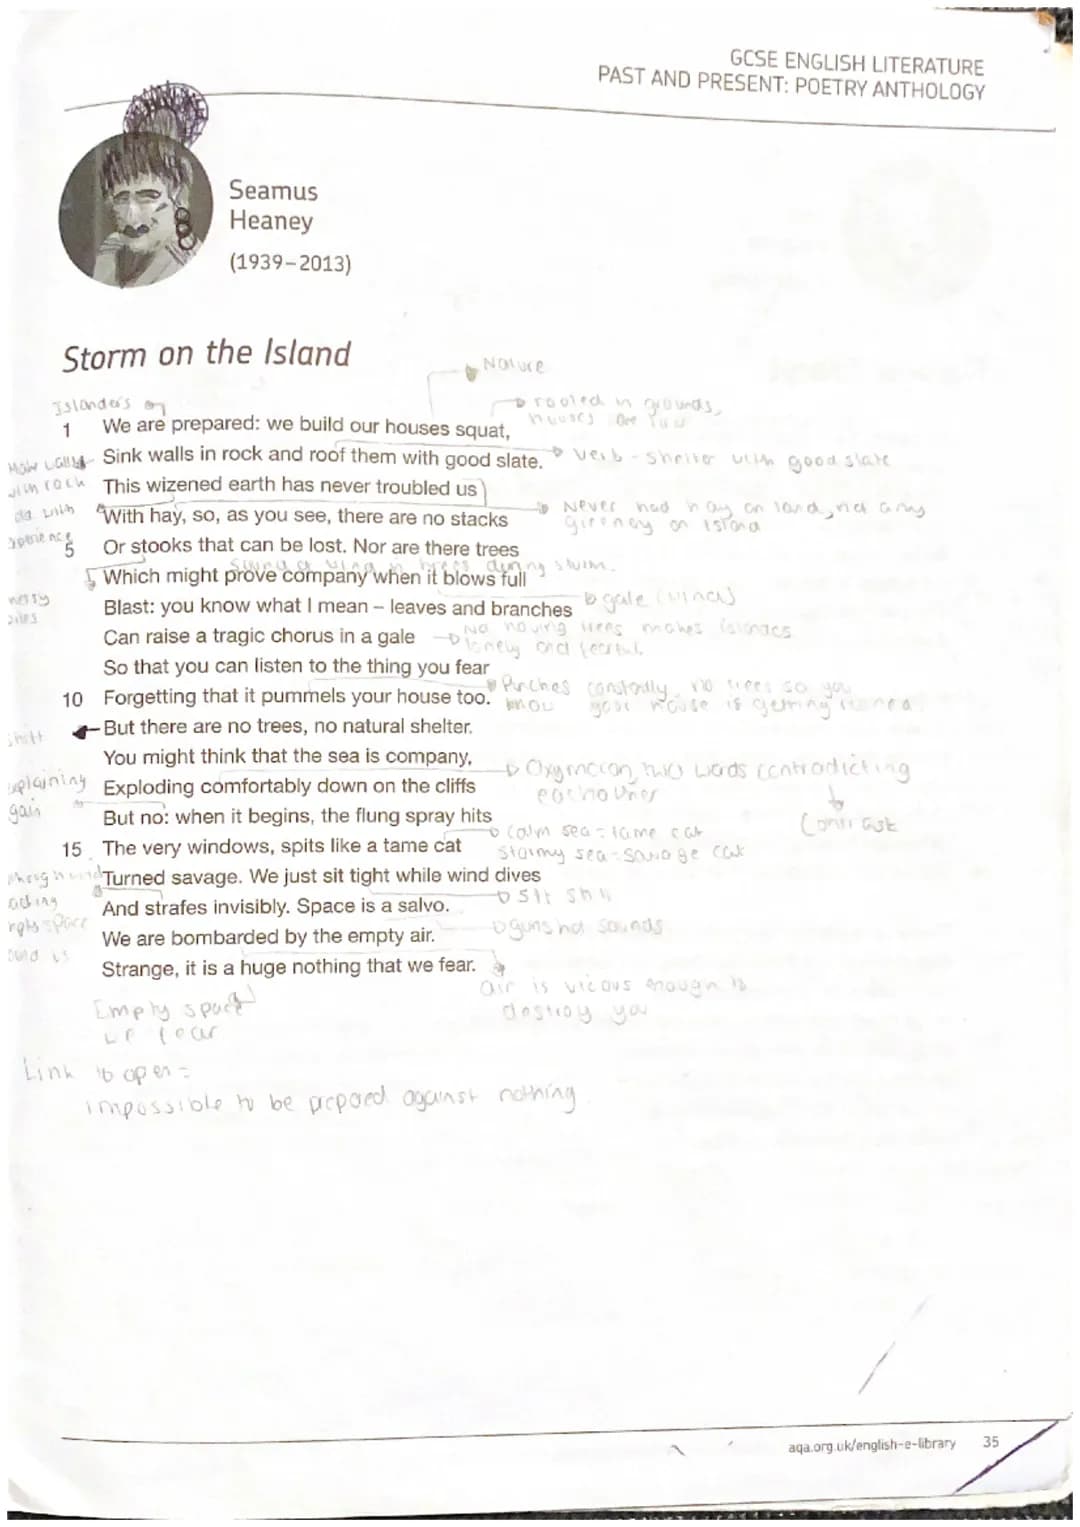 GCSE ENGLISH LITERATURE
PAST AND PRESENT: POETRY ANTHOLOGY
Seamus
Heaney
(1939–2013)
Storm on the Island
Nature
Islanders
rooled in grounds,
houses are
1 We are prepared: we build our houses squat,
Make walls
Sink walls in rock and roof them with good slate.
Verb - shelter with good slate
with rock
This wizened earth has never troubled us
old with
With hay, so, as you see, there are no stacks
Never had hay on land, not any
greenery on island
5 Or stooks that can be lost. Nor are there trees
Sound of wind in trees during storm.
Which might prove company when it blows full
messy
piles
Blast: you know what I mean – leaves and branches
gale (winds)
Can raise a tragic chorus in a gale
No having trees makes islanders
lonely and fearful.
So that you can listen to the thing you fear
10 Forgetting that it pummels your house too.
Punches constantly, no trees so you
know your house is getting ruined
shift
But there are no trees, no natural shelter.
You might think that the sea is company,
Oxymoron, two words contradicting
eachother
Contrast
explaining
again
Exploding comfortably down on the cliffs
But no: when it begins, the flung spray hits
calm sea = tame cat
stormy sea = savage cat
15 The very windows, spits like a tame cat
Turned savage. We just sit tight while wind dives
sit still
And strafes invisibly. Space is a salvo.
gunshot sounds
We are bombarded by the empty air.
Strange, it is a huge nothing that we fear.
air is vicous enough to
destroy you
Empty space
we fear
Link to open =
impossible to be prepared against nothing.
aqa.org.uk/english-e-library 35